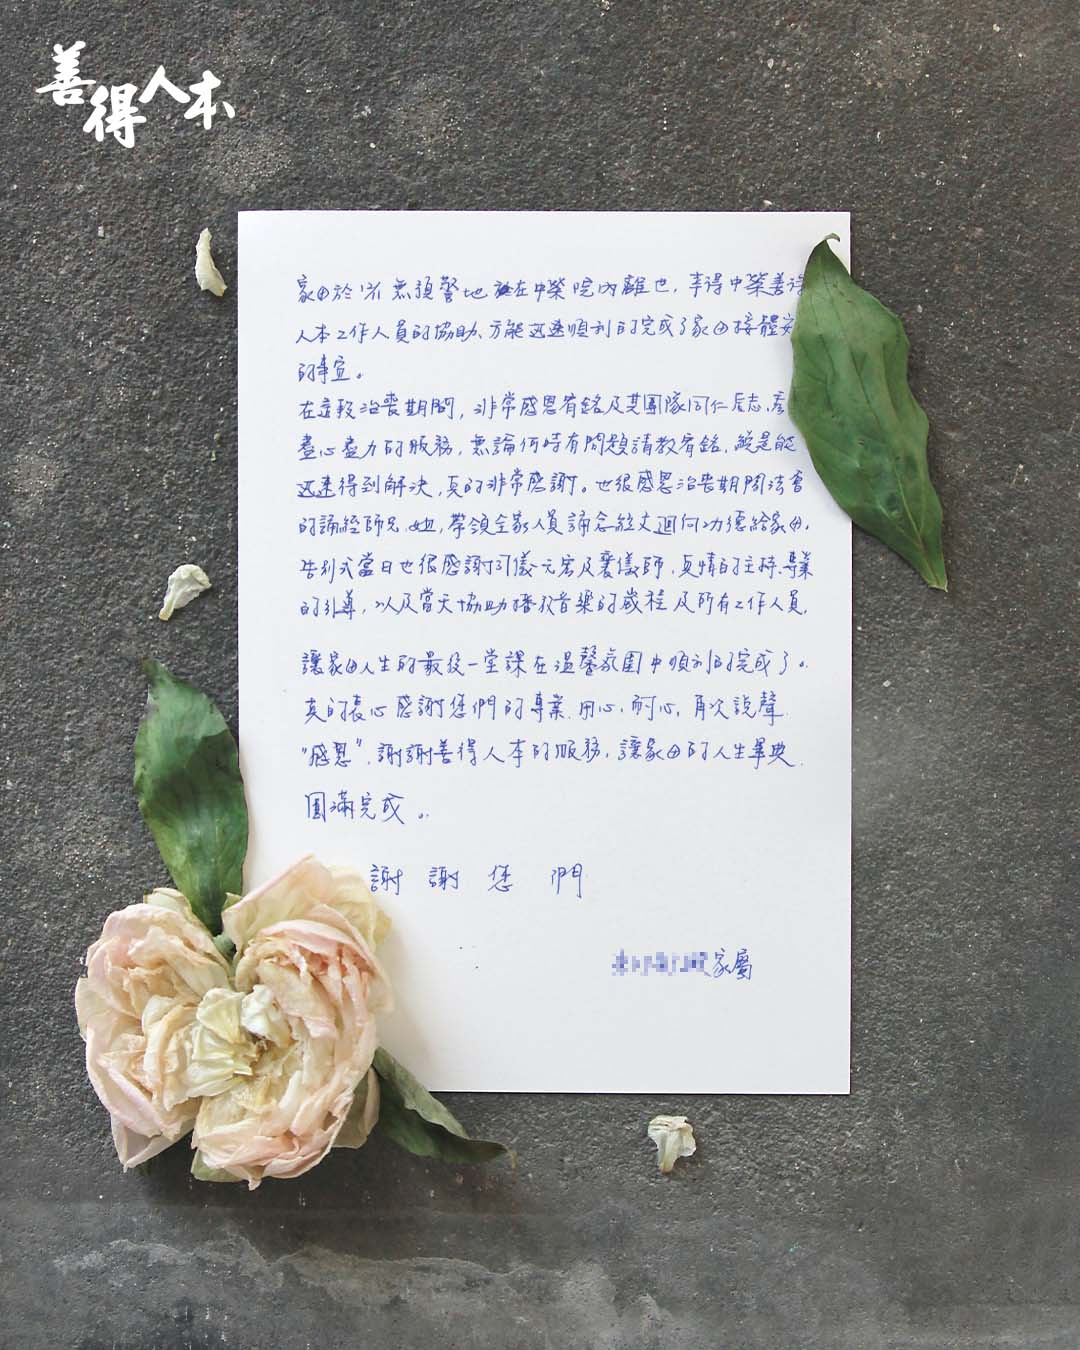 善得人本
家母於 無預警地在中榮院內離世,幸得中榮善得
人本工作人員的協助、方能迅速順利的完成了家母接體安
的事宜。
在這段治喪期間,非常感恩宥銘及其團隊同仁
盡心盡力的服務,無論何時有問題請教宥銘,總是能
迅速得到解決,真的非常感謝。也很感恩治喪期間法會
的誦經師兄、姐,帶領全家人員誦念經文迴向功德給家母.
告別式當日也很感謝引儀元宏及襄儀師,真情的主持、專業
的引導,以及當天協助播放音樂的 及所有工作人員,
讓家母人生的最後一堂課在溫馨氛圍中順利的完成了。
真的衷心感謝您們的專業、用心、耐心,再次說聲
“感恩”,謝謝善得人本的服務,讓家母的人生畢典
圓滿完成。
謝謝您們
家屬